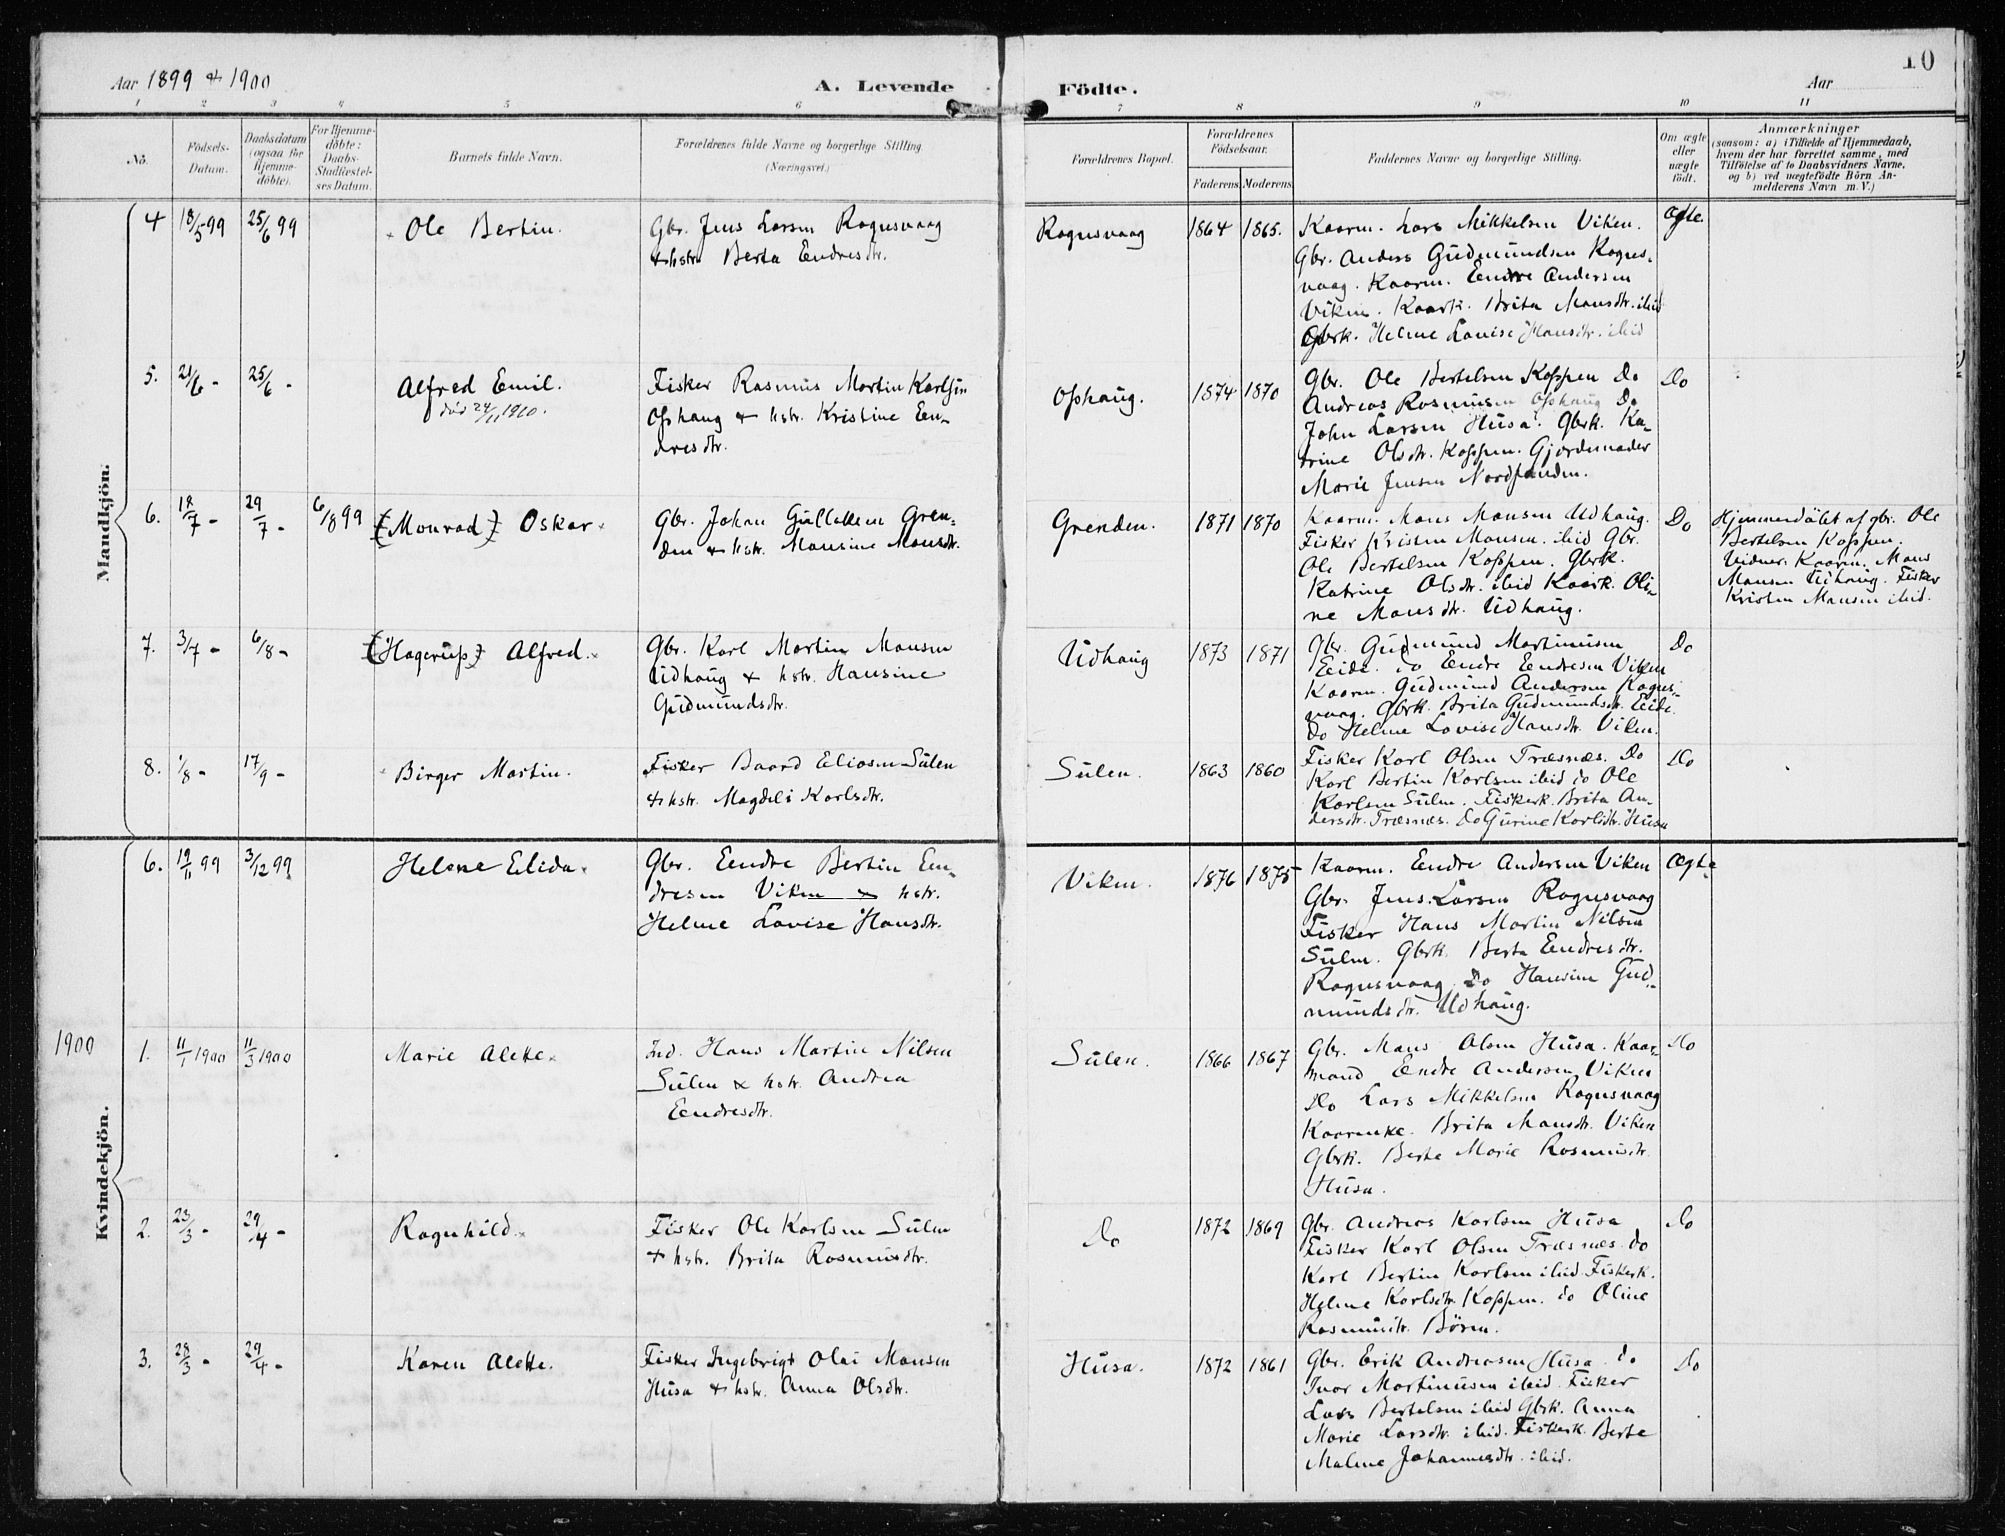 Aar 1899 & 1900
A. Levende Födte.
Aar
10
1 2 3 4 5 6 7 8 9 10 11
No.
Födsels-Datum.
Daabsdatum (ogsaa for Hjemme-döbte).
For Hjemme-döbte: Daabs-Stadfæstel-ses Datum.
Barnets fulde Navn.
Forældrenes fulde Navne og borgerlige Stilling.
(Næringsvei.)
Forældrenes Bopæl.
Forældrenes Födselsaar.
Faderens Moderens
Faddernes Navne og borgerlige Stilling.
Om ægte eller uægte födt.
Anmærkninger
(saasom: a) i Tilfælde af Hjemmedaab,
hvem der har forrettet samme, med
Tilföielse af to Daabsvidners Navne,
og b) ved uægtefödte Börn An-
melderens Navn m. V.)
Mandkjön.
4 18/5 99 25/6 99 Ole Bertin. Gbr. Jens Larsen Ragnsvaag
& hstr. Berta Endresdtr.
Ragnsvaag 1864 1865. Kaarm. Lars Mikkelsen Viken. Ægte.
Gbr. Anders Gudmundsen Rogns-
vaag. Kaarm. Eendre Andersen
Viken. Kaark. Brita Mansdtr. ibid
Gbrk. Helene Lovise Hansdtr. ibid
5. 21/6 - 25/6 - Alfred Emil. Fisker Rasmus Martin Karlsen
død 24/11 1910.
Ofshaug & hstr. Kristine Een-
dresdtr.
Ofshaug. 1874 1870 Gbr. Ole Bertelsen Koppen Do Do
Andreas Rasmusen Ofshaug Do
John Larsen Husa. Gbrk. Ka-
trine Olsdtr. Koppen. Gjordemoder
Marie Jensen Nordfanden.
6. 18/7 - 29/7 - 6/8 99 (Monrad) Oskar Gbr. Johan Gullaksen Gren-
den & hstr. Mansine Mansdtr.
Grenden. 1871 1870 Kaarm. Mons Monsen Udhaug. Do
Fisker Kristen Monsen. ibid Gbr.
Ole Bertelsen Koppen. Gbrk.
Katrine Olsdtr. ibid Kaark. Oli-
ne Monsdtr. Udhaug.
Hjemmedöbt af gbr. Ole
Bertelsen Koppen.
Vidner: Kaarm. Mons
Monsen Udhaug. Fisker
Kristen Monsen ibid.
7. 3/7 - 6/8 - (Hagerup) Alfred. Gbr. Karl Martin Monsen
Udhaug & hstr. Hansine
Gudmundsdtr.
Udhaug 1873 1871 Gbr. Gudmund Martinusen Do
Eide. do Eendre Eendresen Viken
Kaarm. Gudmund Andersen Rogns-
vaag. Gbrk. Brita Gudmundsdtr. Eide.
Do Helene Lovise Hansdtr. Viken.
8. 1/8 - 17/9 - Birger Martin. Fisker Baard Eliasen Sulen
& hstr. Magdeli Karlsdtr.
Sulen. 1863 1860 Fisker Karl Olsen Træsnæs. Do Do
Karl Bertin Karlsen ibid do Ole
Karlsen Sulen. Fiskerk. Brita An-
dersdtr. Træsnæs. Do Gurine Karlsdtr. Husa
Kvindekjön.
6. 19/11 99 3/12 99 Helene Elida. Gbr. Eendre Bertin Een-
dresen Viken & hstr.
Helene Lovise Hansdtr.
Viken. 1876 1875 Kaarm. Eendre Andersen Viken Ægte
Gbr. Jens Larsen Ragnsvaag
Fisker Hans Martin Nilsen
Sulen. Gbrk. Berta Eendresdtr.
Ragnsvaag. Do Hansine Gud-
mundsdtr. Udhaug.
1900
1. 11/1 1900 11/3 1900 Marie Alette. Ind. Hans Martin Nilsen
Sulen & hstr. Andrea
Eendresdtr.
Sulen. 1866 1867 Gbr. Mans Olsen Husa. Kaar- Do
mand Eendre Andersen Viken
Do Lars Mikkelsen Ragnsvaag
Kaarenke. Brita Mansdtr. Viken
Gbrk. Berte Marie Rasmusdtr.
Husa.
2. 23/3 - 29/4 - Ragnhild. Fisker Ole Karlsen Sulen
& hstr. Brita Rasmusdtr.
Do 1872 1869 Gbr. Andreas Karlsen Husa Do
Fisker Karl Olsen Træsnæs. do
Karl Bertin Karlsen ibid. Fiskerk.
Helene Karlsdtr. Koppen. do Oline
Rasmusdtr. Börøn.
3. 28/3 - 29/4 - Karen Alette. Fisker Ingebrigt Olai Monsen
Husa & hstr. Anna Olsdtr.
Husa. 1872 1861 Gbr. Erik Andreasen Husa. do Do
Ivar Martinusen ibid. Fisker
Lars Bertelsen ibid Gbrk. Anna
Marie Larsdtr. ibid. Fiskerk. Berte
Malene Johannesdtr. ibid.